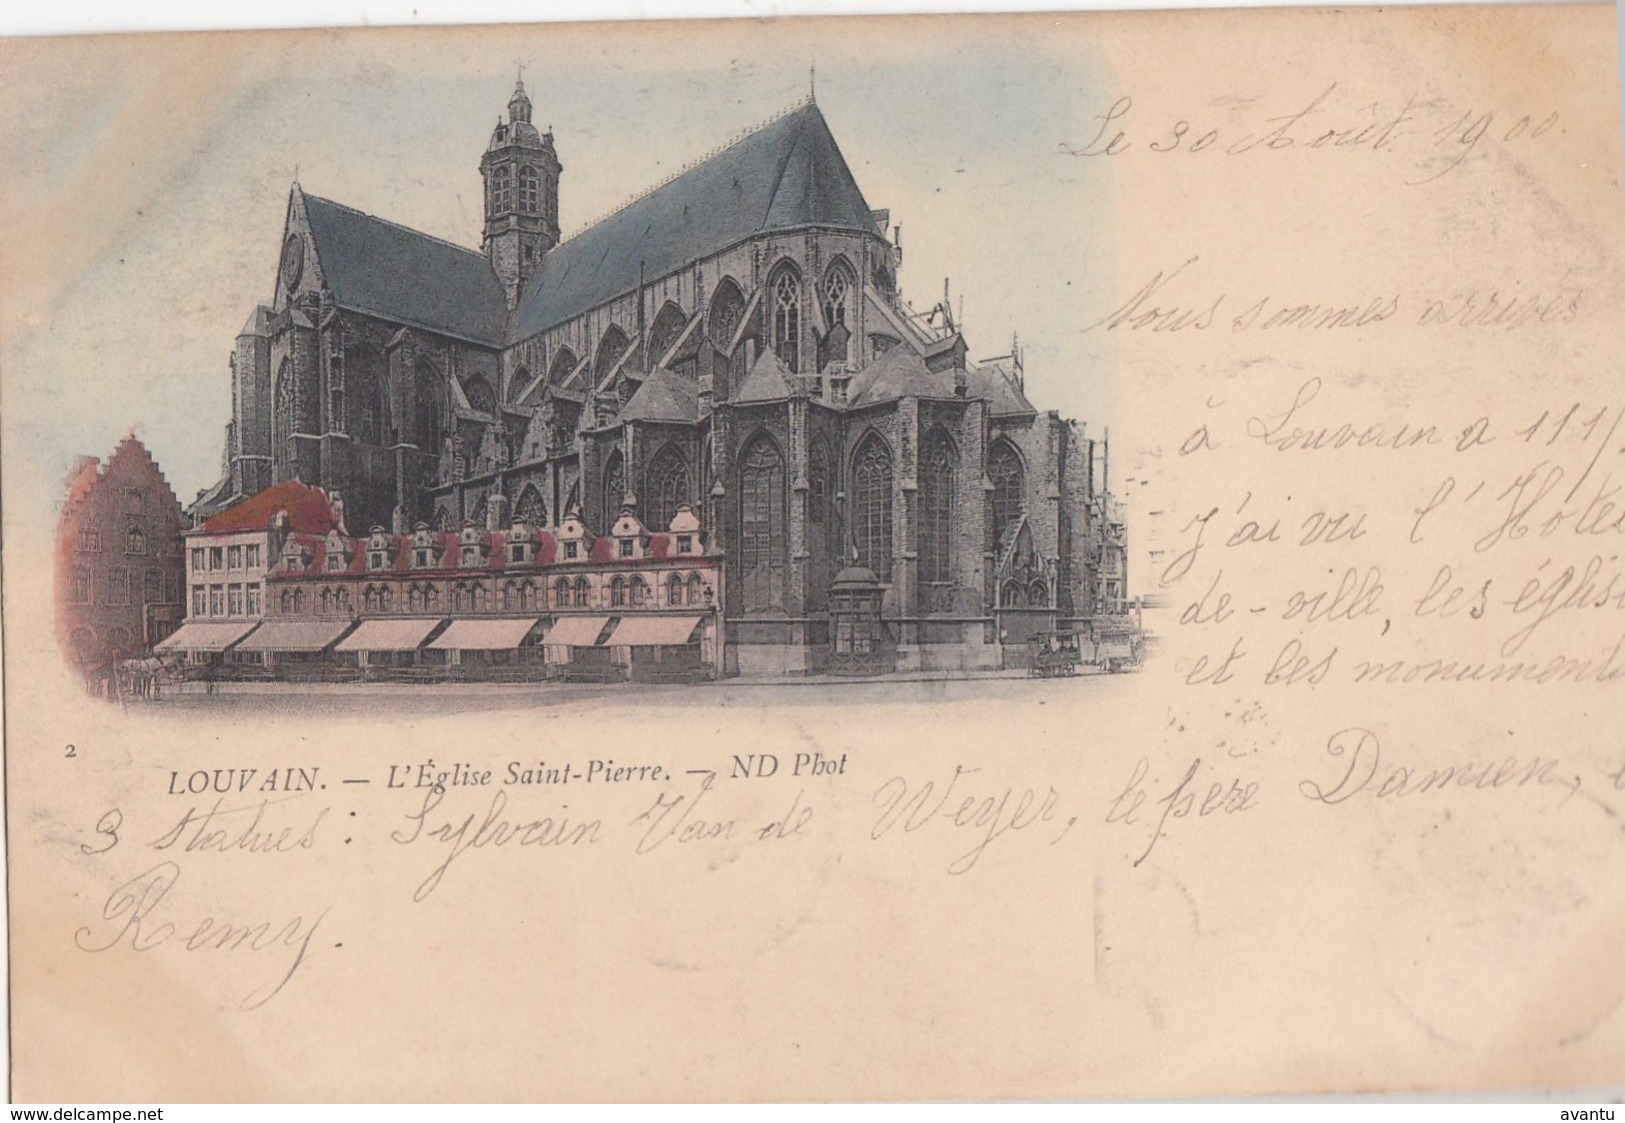 Le 30 Août 1900
Nous sommes arrivés
à Louvain a 11 1/
J'ai vu l'Hôtel
de-ville, les églis
et les monument
2
LOUVAIN. — L'Église Saint-Pierre. — ND Phot
3 statues : Sylvain Van de Weyer, le père Damien,
Remy.
www.delcampe.net
avantu